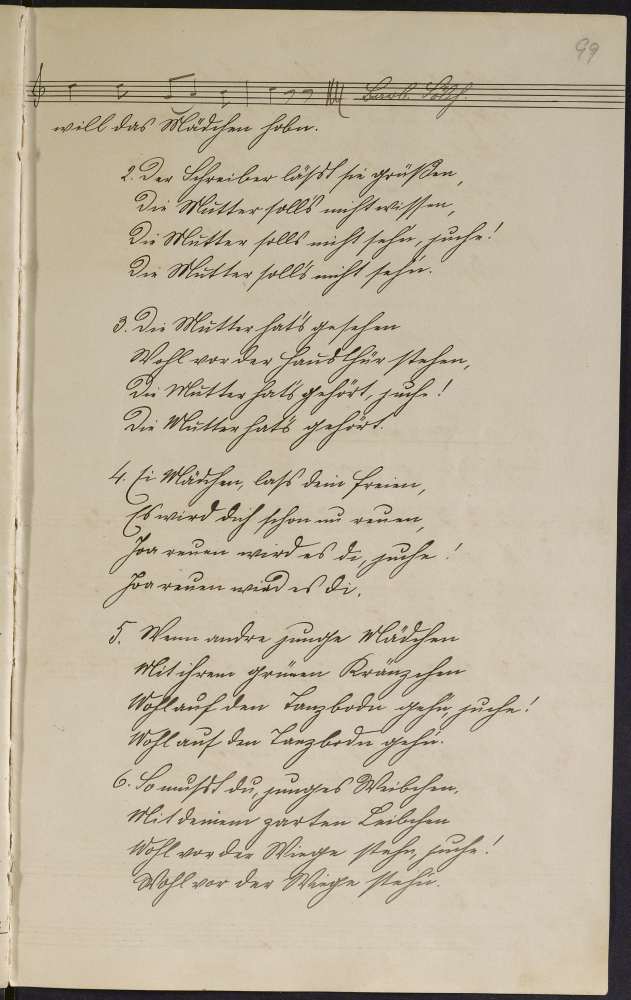 99
will das Mädchen hobn.
2. Der Schreiber lässt sie grüßen,
Die Mutter solls nicht wissen,
Die Mutter solls nicht sehn, juche!
Die Mutter solls nicht sehn.
3. Die Mutter hat's gesehen
Wohl vor der Hausthür stehen,
Die Mutter hat's gehört, juche!
Die Mutter hat's gehört.
4. Ei Mädchen, lass dein Freien,
Es wird dich schon nu reuen,
Joa reuen wird es di, juche!
Joa reuen wird es di.
5. Wenn andre junge Mädchen
Mit ihrem grünen Kränzchen
Wohl auf den Tanzbodn gehn, juche!
Wohl auf den Tanzbodn gehn.
6. So musst du, junges Weibchen,
Mit deinem zarten Leibchen
Wohl vor der Wiege stehn, juche!
Wohl vor der Wiege stehn.